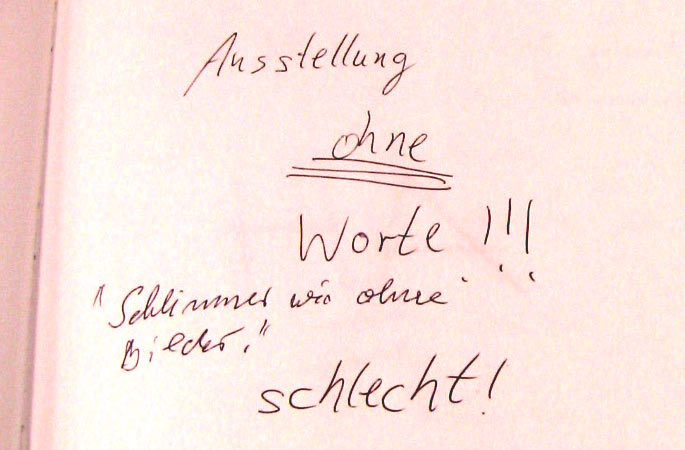 Ausstellung
ohne
Worte !!!
"Schlimmer wie ohne
Bilder."
schlecht!